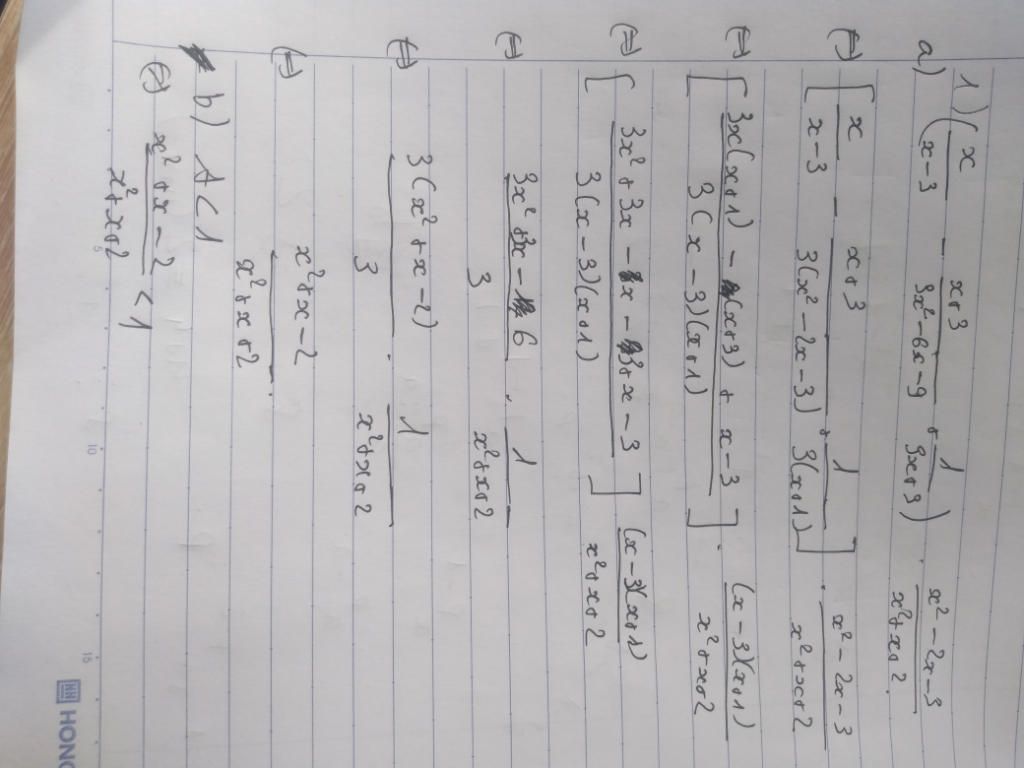 1) (x/(x-3) - (x+3)/(3x²-6x-9) + 1/(3x+3)) . (x²-2x-3)/(x²+x+2)
a)
(=) [x/(x-3) - (x+3)/(3(x²-2x-3)) + 1/(3(x+1))] . (x²-2x-3)/(x²+x+2)
(=) [(3x(x+1) - (x+3) + x-3)/(3(x-3)(x+1))] . ((x-3)(x+1))/(x²+x+2)
(=) [(3x²+3x-x-3+x-3)/(3(x-3)(x+1))] . ((x-3)(x+1))/(x²+x+2)
(=) (3x²+3x-6)/3 . 1/(x²+x+2)
(=) (3(x²+x-2))/3 . 1/(x²+x+2)
(=) (x²+x-2)/(x²+x+2) .
b) A < 1
(=) (x²+x-2)/(x²+x+2) < 1
5
10
15
HONG